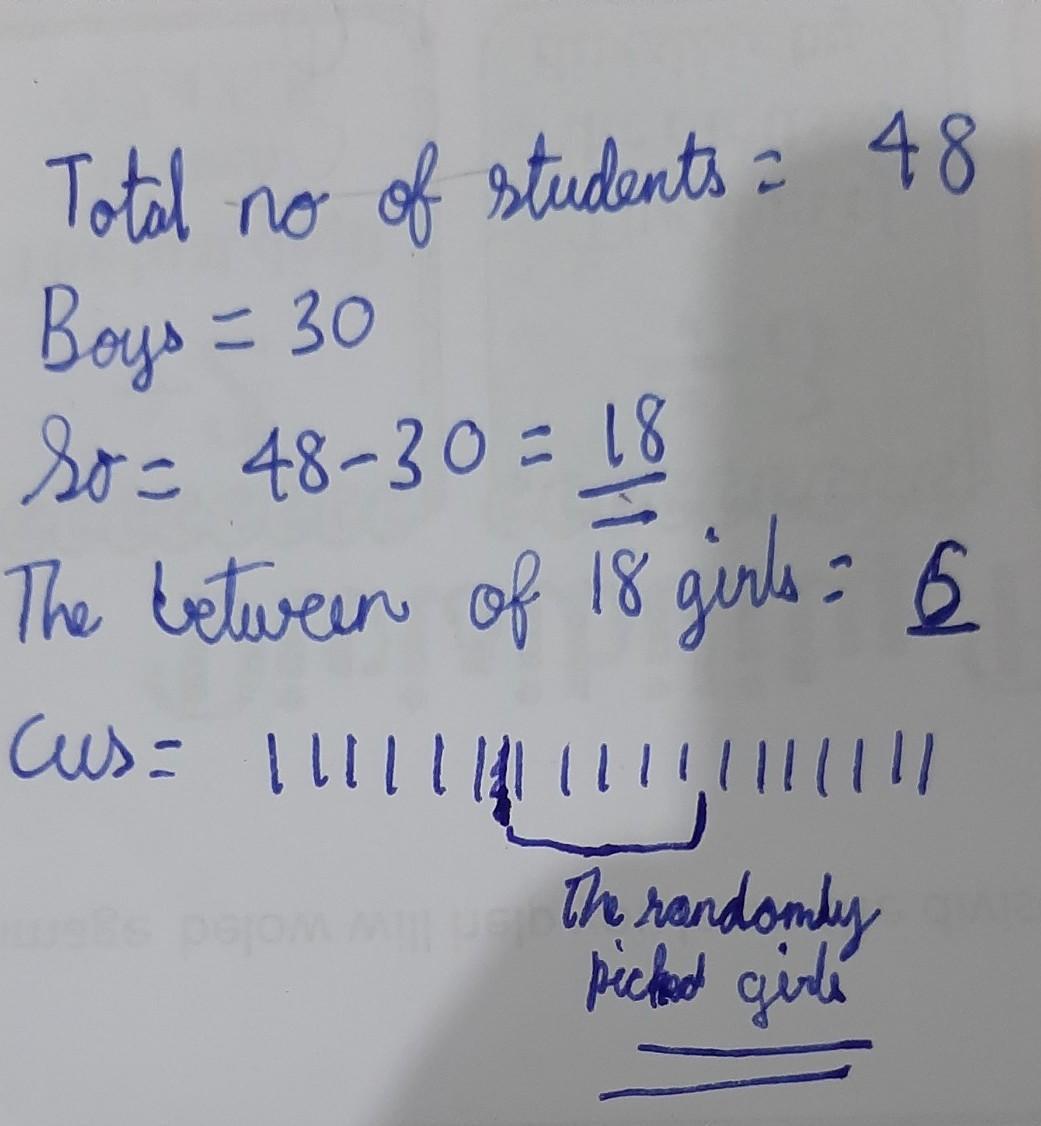 Total no of students = 48
Boys = 30
So = 48-30 = 18
The between of 18 girls = 6
Cus = | | | | | | | | | | | | | | | | | | |
The randomly
picked girls